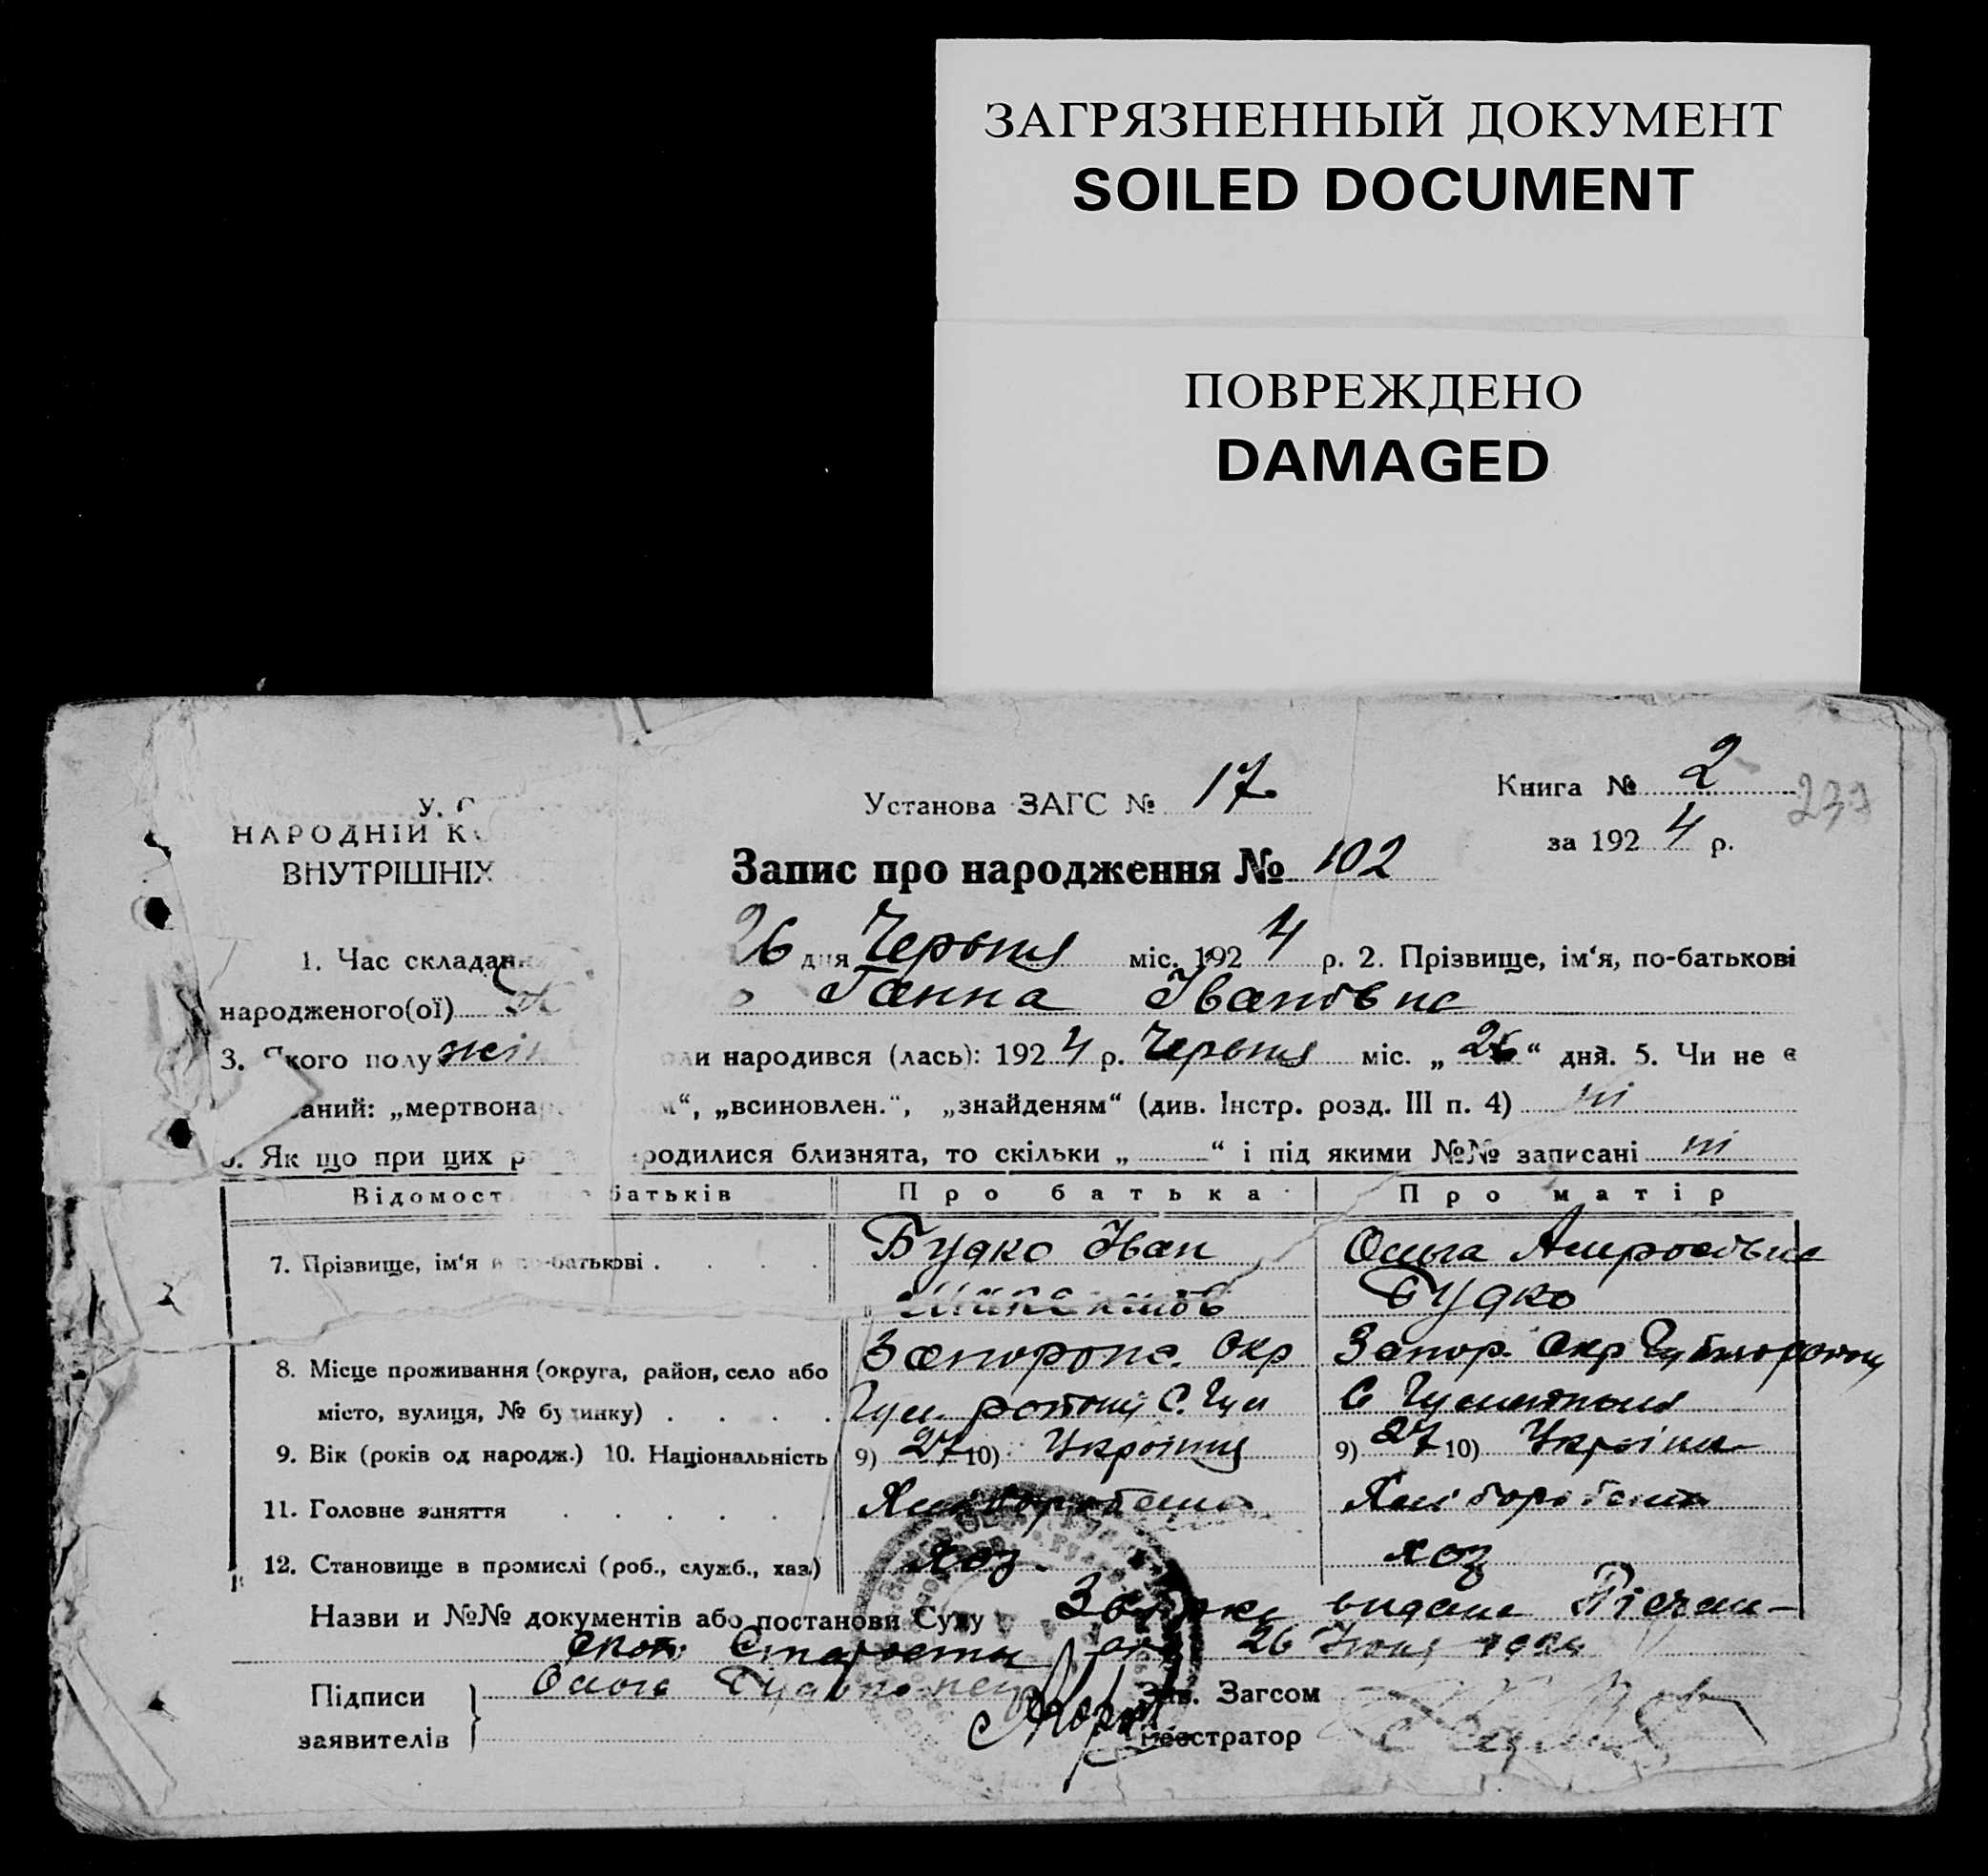 ЗАГРЯЗНЕННЫЙ ДОКУМЕНТ
SOILED DOCUMENT
ПОВРЕЖДЕНО
DAMAGED
У. С
НАРОДНІЙ К
ВНУТРІШНІХ
Установа ЗАГС № 17
Книга № 2
239
за 1924 р.
Запис про народження № 102
1. Час складан 26 дня Червня міс. 1924 р. 2. Прізвище, ім‘я, по-батькові
народженого(ої) Ганна Івановна
3. Якого полу жін ли народився (лась): 1924 р. Червня міс. „ 26 “ дня. 5. Чи не є
аний: „мертвона м“, „всиновлен.“, „знайденям“ (див. Інстр. розд. III п. 4) ні
6. Як що при цих р родилися близнята, то скільки „ “ і під якими №№ записані ні
Відомост батьків Про батька Про матір
7. Прізвище, ім‘я и по-батькові . . . . Будко Іван Ольга Амросовна
Будко
8. Місце проживання (округа, район, село або Окр Запор. Окр
місто, вулиця, № будинку) . . . . С. Гул С
9. Вік (років од народж.) 10. Національність 9) 27 10) Україниц 9) 27 10) Україн
11. Головне заняття . . . . . Хліборобства Хліборобства
12. Становище в промислі (роб., служб., хаз.) хоз. хоз
Назви и №№ документів або постанови Суду видана
26 1924
Підписи Ольга Зав. Загсом
заявителів Реєстратор